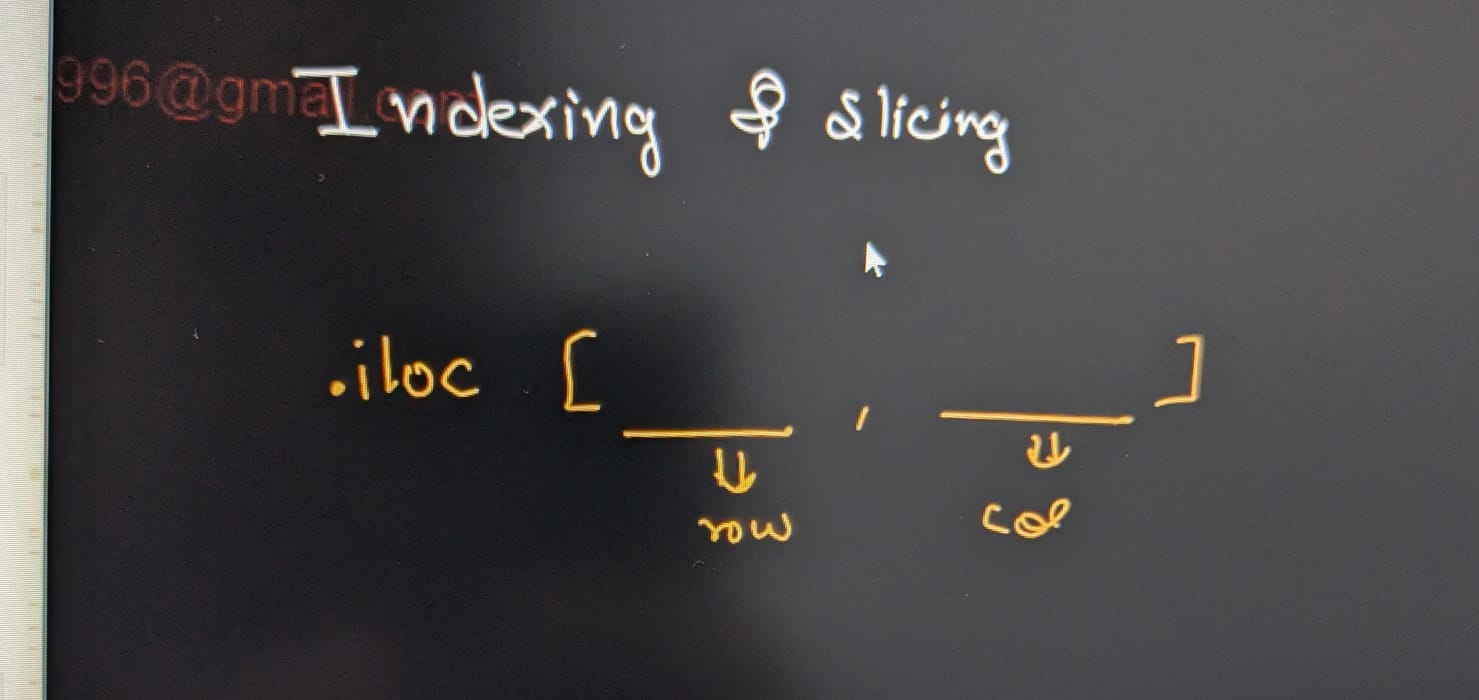 996@gmail.com
Indexing & Slicing
.iloc [ , ]
row col